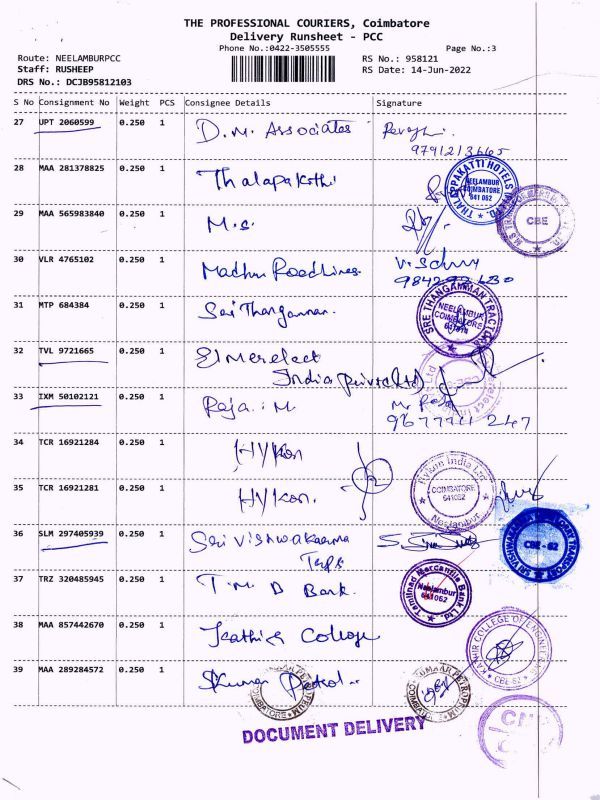 THE PROFESSIONAL COURIERS, Coimbatore
Delivery Runsheet - PCC
Phone No.:0422-3505555 Page No.:3
Route: NEELAMBURPCC RS No.: 958121
Staff: RUSHEEP RS Date: 14-Jun-2022
DRS No.: DCJB95812103
S No Consignment No Weight PCS Consignee Details Signature
27 UPT 2060599 0.250 1 D.M. Associates
9791213665
28 MAA 281378825 0.250 1 Thalapakathi
THALAPPAKATTI HOTELS NEELAMBUR COIMBATORE 641 062
29 MAA 565983840 0.250 1 M.S.
CBE
30 VLR 4765102 0.250 1 Madhur Roadlines
31 MTP 684384 0.250 1 Sri Thangamman.
SRE THANGAMMAN TRACTOR NEELAMBUR COIMBATORE
32 TVL 9721665 0.250 1 Elmerelect
India Private Ltd
33 IXM 50102121 0.250 1 Raja. M
34 TCR 16921284 0.250 1 HYKon
35 TCR 16921281 0.250 1 HYKon.
Hykon India Ltd COIMBATORE 641062 Neelambur
36 SLM 297405939 0.250 1 Sri Vishwakarma
CBE-62
37 TRZ 320485945 0.250 1 T.M.B Bank.
Tamilnad Mercantile Bank Ltd. Neelambur 641 062
38 MAA 857442670 0.250 1 Kathir College
KATHIR COLLEGE OF ENGINEERING CBE-62
39 MAA 289284572 0.250 1 SKumar Petrol
COIMBATORE
DOCUMENT DELIVERY